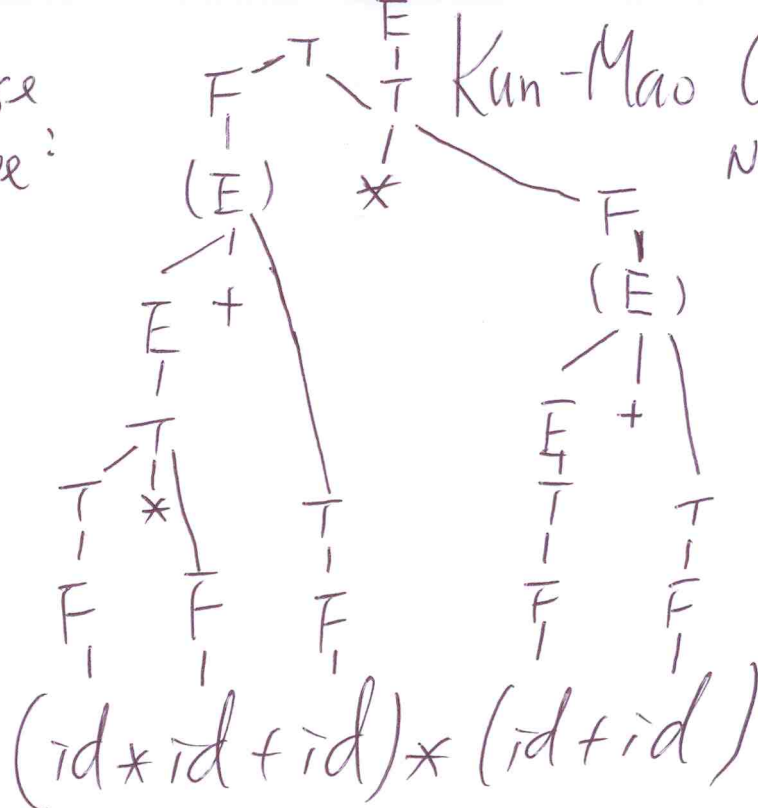 E
F T T Kun-Mao
(E) * F
E + (E)
T E +
T * T T T
F F F F F
(id*id+id)*(id+id)